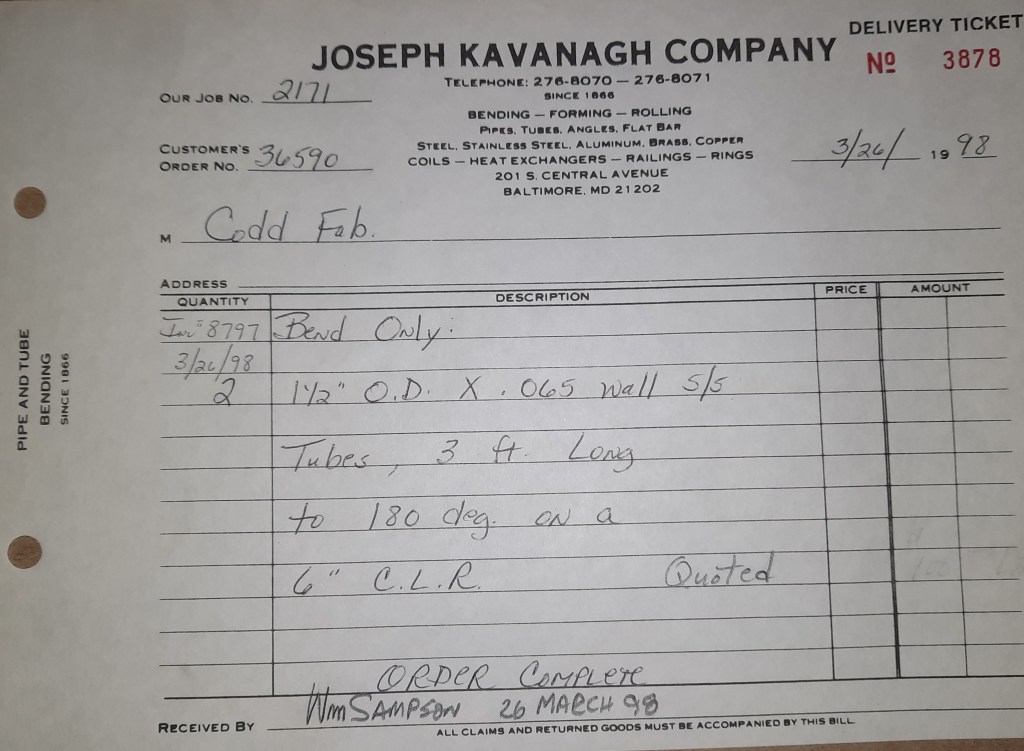 DELIVERY TICKET
JOSEPH KAVANAGH COMPANY
Nº 3878
TELEPHONE: 276-8070 — 276-8071
SINCE 1866
OUR JOB NO. 2171
BENDING — FORMING — ROLLING
PIPES, TUBES, ANGLES, FLAT BAR
STEEL, STAINLESS STEEL, ALUMINUM, BRASS, COPPER
CUSTOMER'S
ORDER NO. 36590
COILS — HEAT EXCHANGERS — RAILINGS — RINGS
3/26/ 19 98
201 S. CENTRAL AVENUE
BALTIMORE, MD 21202
M Codd Fab.
ADDRESS
QUANTITY DESCRIPTION PRICE AMOUNT
Inv # 8797 Bend Only:
3/26/98
2 1 1/2" O.D. X .065 Wall S/S
Tubes, 3 ft. Long
to 180 deg. on a
6" C.L.R. Quoted
ORDER COMPLETE
Wm SAMPSON 26 MARCH 98
RECEIVED BY
ALL CLAIMS AND RETURNED GOODS MUST BE ACCOMPANIED BY THIS BILL
PIPE AND TUBE
BENDING
SINCE 1866